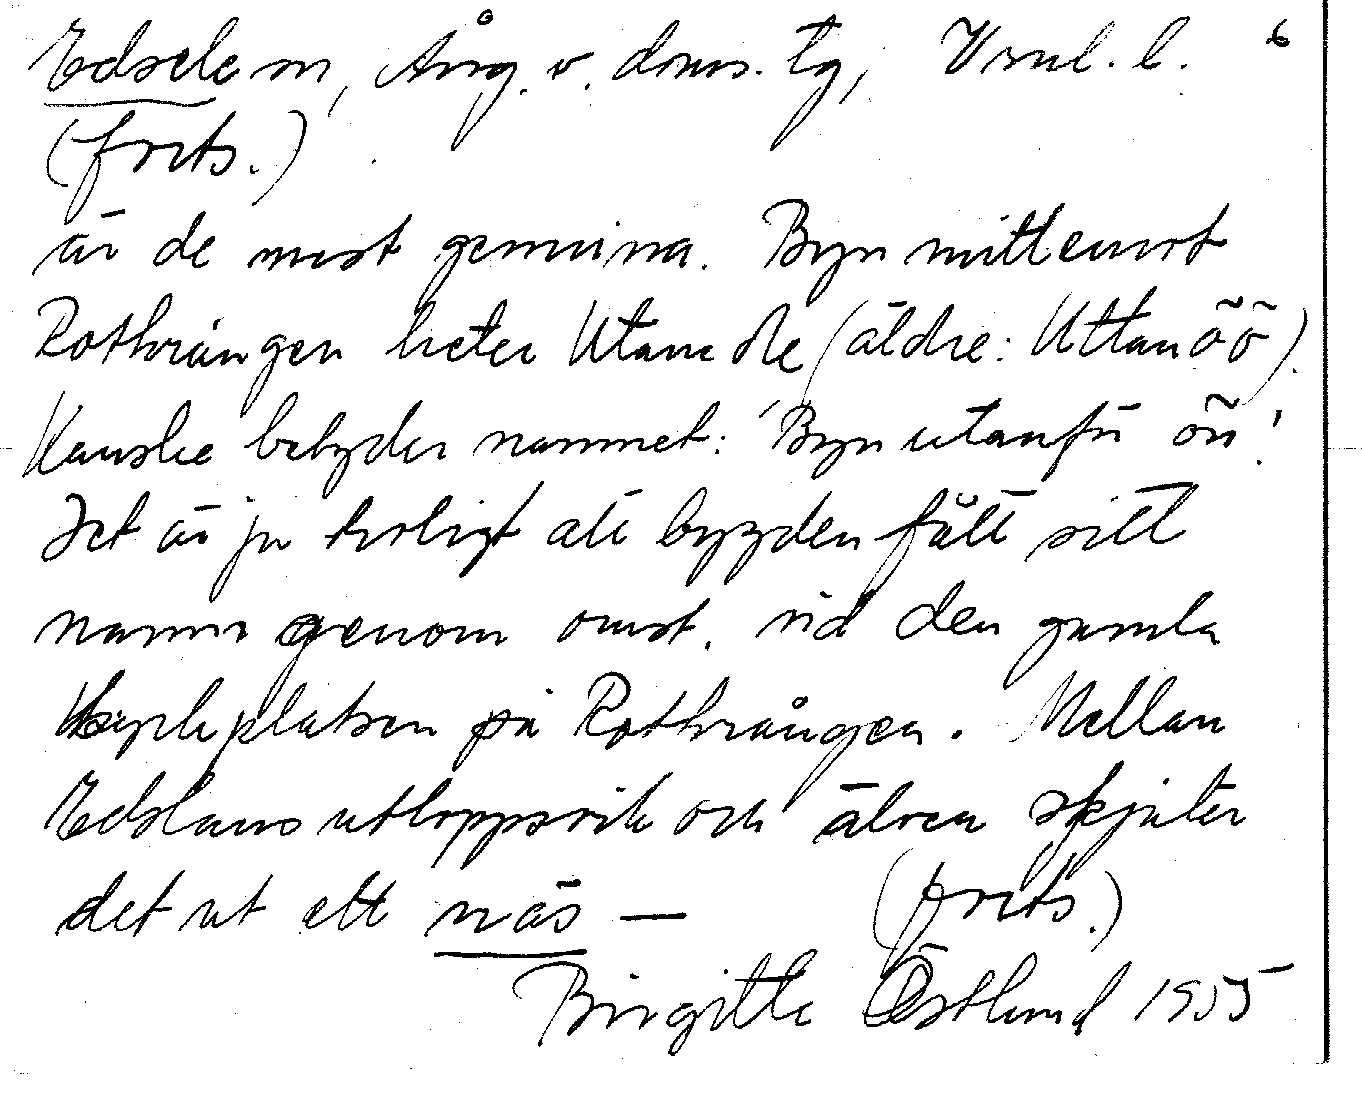 Edsele sn, Ång. v. doms. tg, Vsnl. l. 6
(forts.)
är de mest genuina. Byn mitt emot
Rothrången heter Utanede (äldre: Uttanöö).
Kanske betyder namnet: 'Byn utanför ön'.
Det är ju troligt att bygden fått sitt
namn genom omst. vid den gamla
kyrkplatsen på Rothrången. Mellan
Edslans utloppsvik och älven skjuter
det ut ett näs — (forts.)
Birgitta Östlund 1955